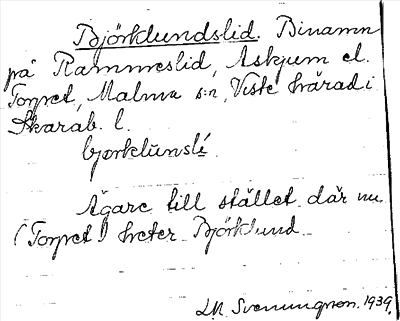 Björklundslid. Binamn
på Rammeslid, Askjum el.
Torpet, Malma s:n, Viste härad i
Skarab. l.
bjorklùnslí
Ägare till stället där nu
(Torpet) heter Björklund
L.M. Svenungson. 1939.